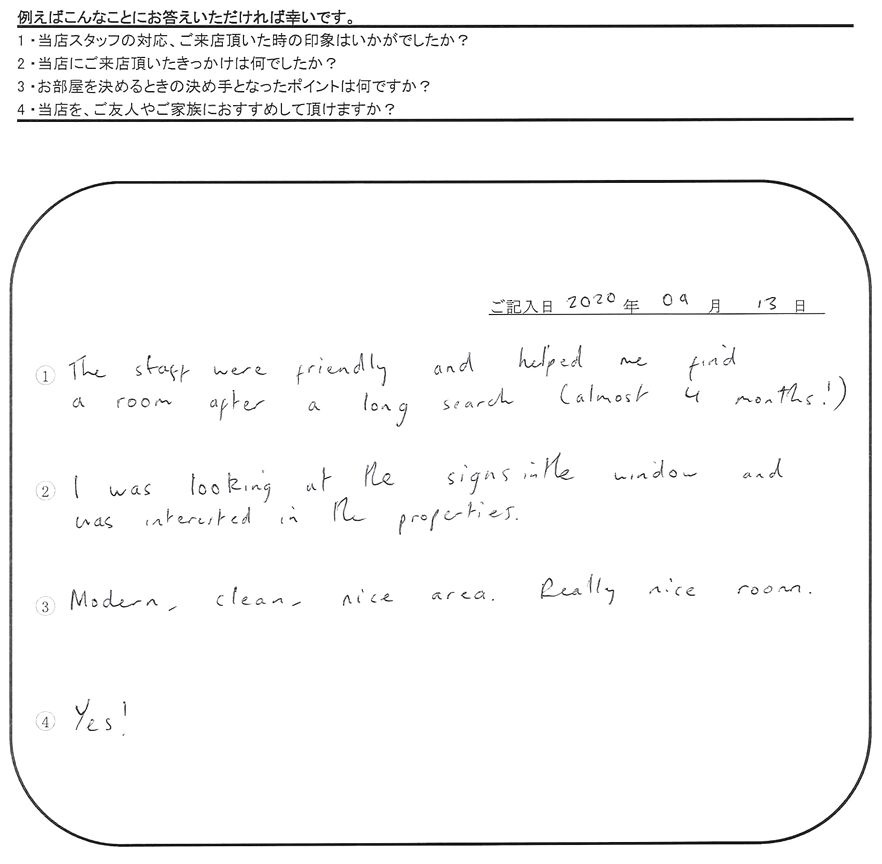 例えばこんなことにお答えいただければ幸いです。
1・当店スタッフの対応、ご来店頂いた時の印象はいかがでしたか？
2・当店にご来店頂いたきっかけは何でしたか？
3・お部屋を決めるときの決め手となったポイントは何ですか？
4・当店を、ご友人やご家族におすすめして頂けますか？
ご記入日 2020 年 09 月 13 日
① The staff were friendly and helped me find
a room after a long search (almost 4 months!)
② I was looking at the signs in the window and
was interested in the properties.
③ Modern, clean, nice area. Really nice room.
④ Yes!